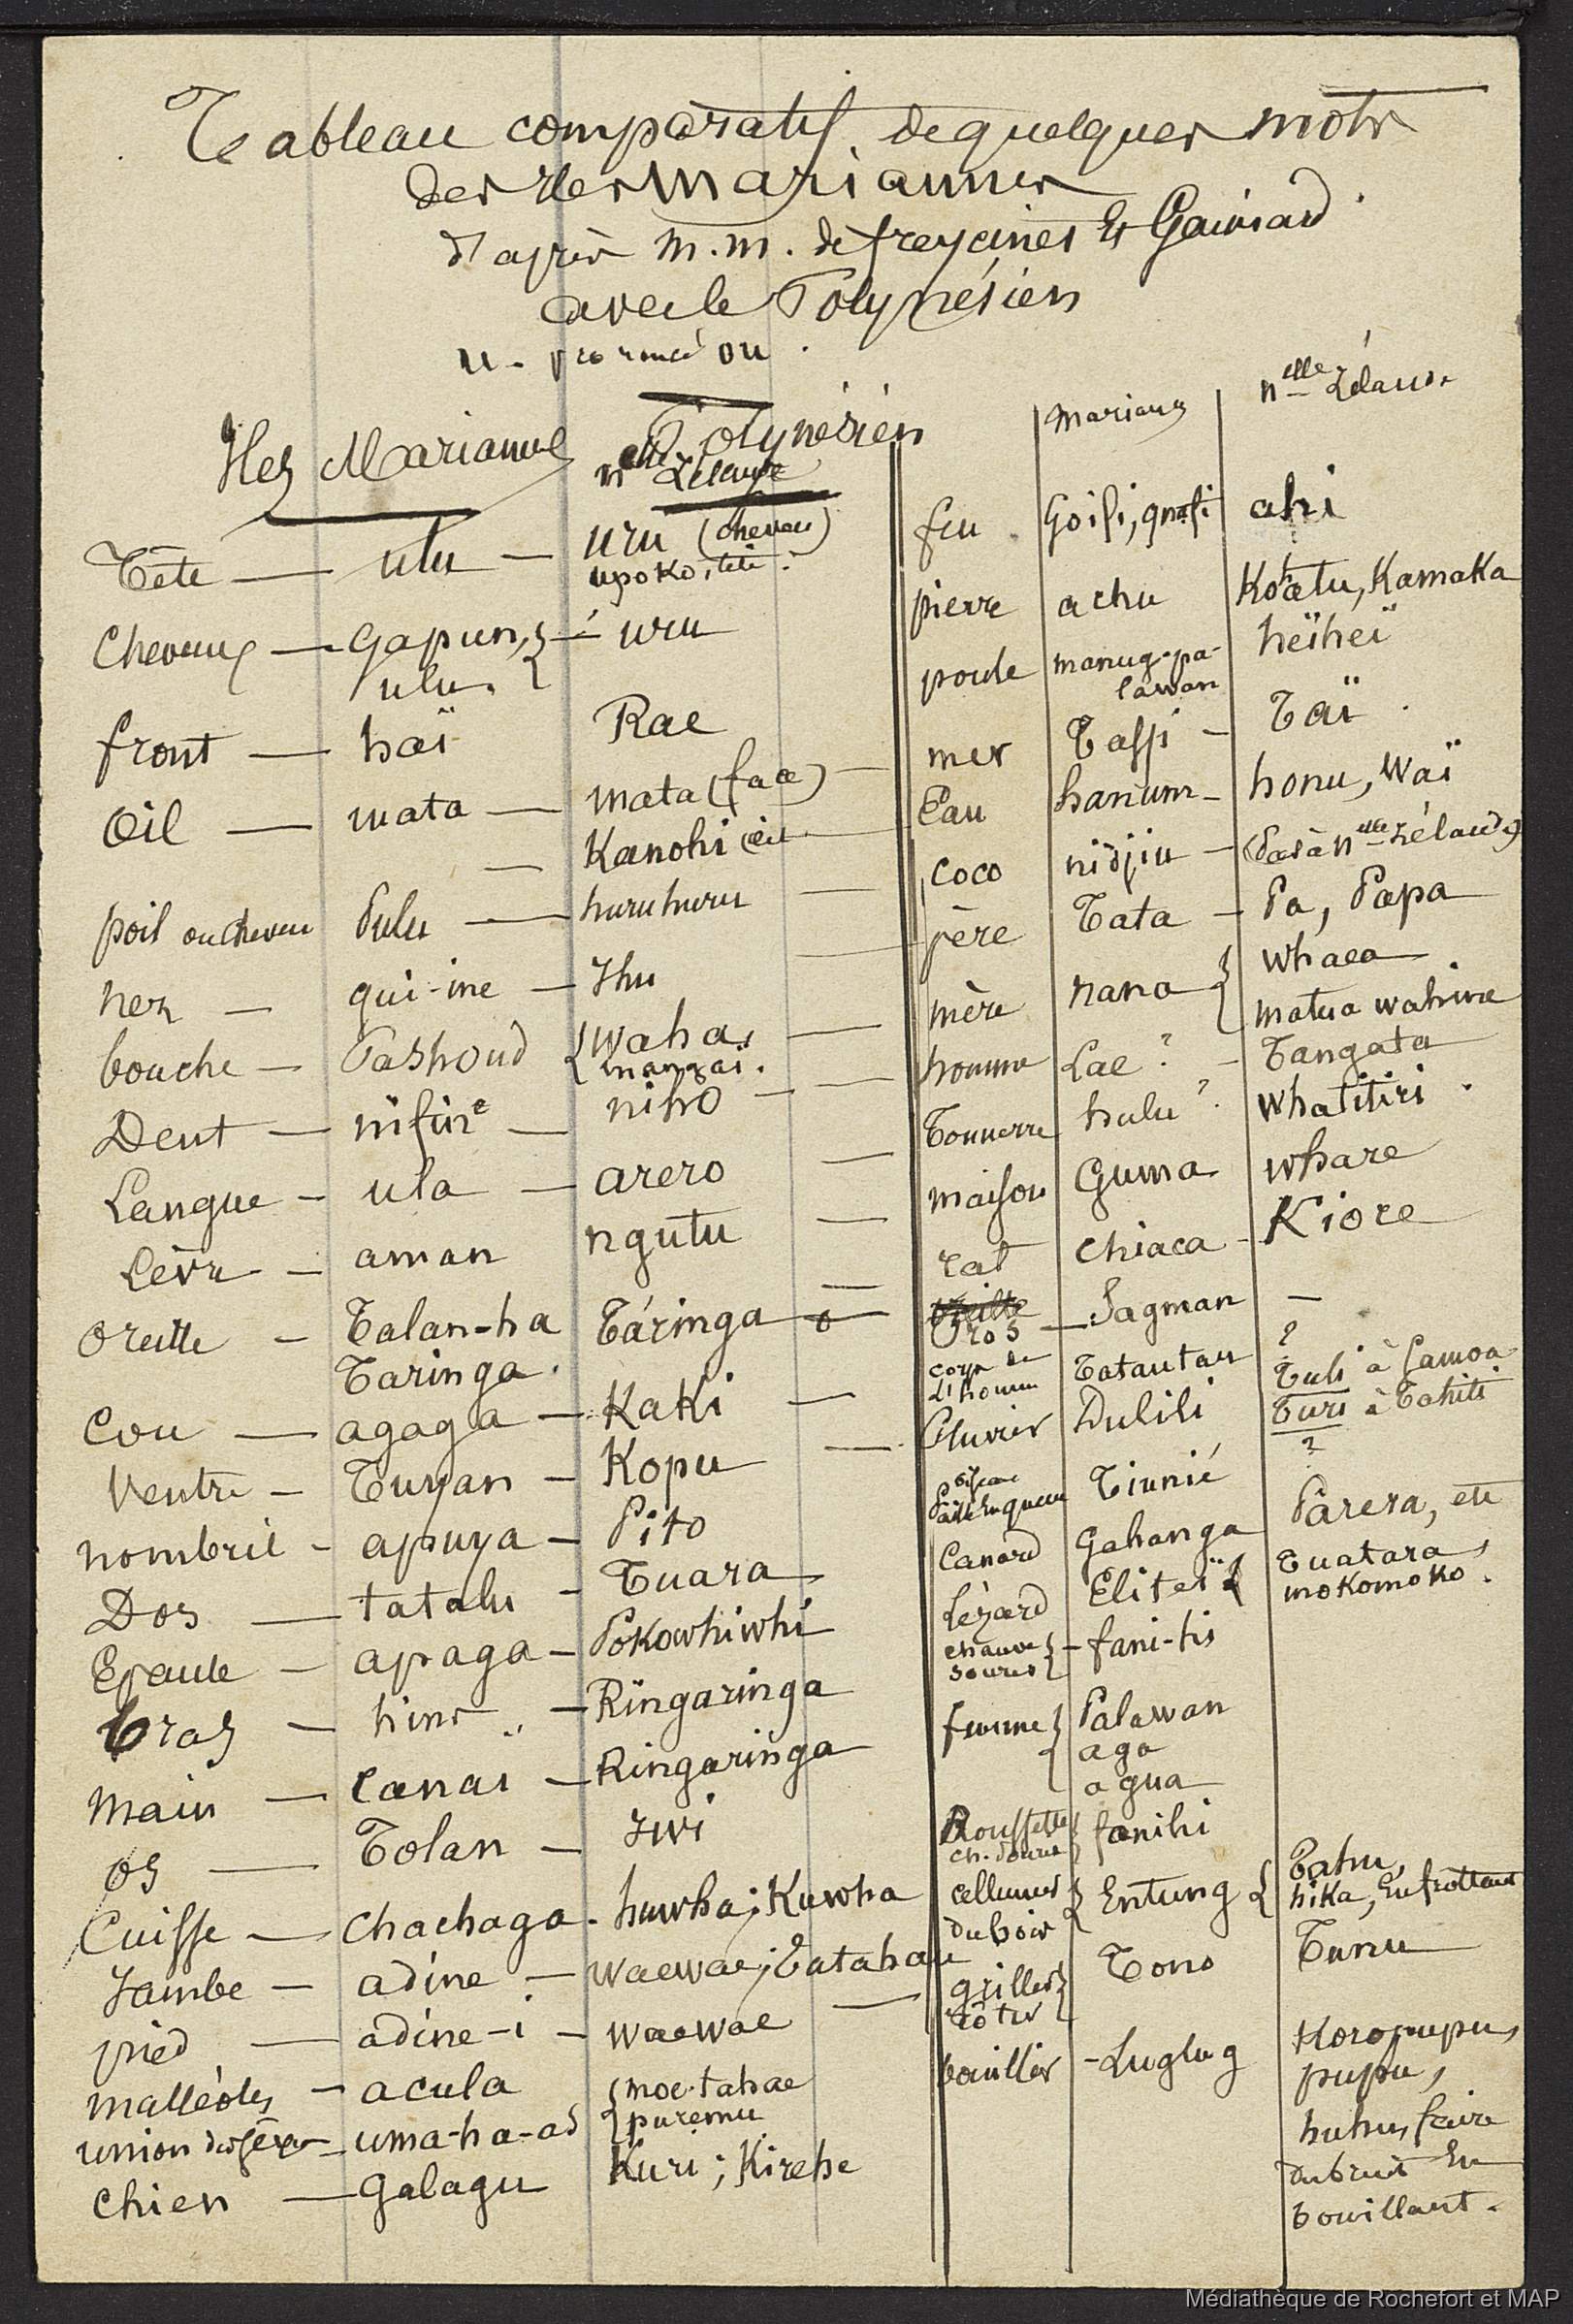 Tableau comparatif de quelques mots
des Iles Mariannes
d'après M.M. de freycinet Et Gaimard
avec le Polynésien
u - prononcé ou.
Iles Mariannes
Polynésien
nlle Zélande
Tête — ulu — uru (cheveu)
upoko, tête.
Cheveux — Gapun, } — uru
ulu.
front — haï Rae
Oeil — mata — mata (face) —
— Kanohi (œil —
poil ou cheveu Pulu — huruhuru —
nez — gui-ine — Ihu
bouche — Pashoud { waha, —
mangai.
Dent — nifine — niho —
Langue — ula — arero —
Lèvre — aman ngutu —
Oreille — Talan-ha Táringa —
Taringa.
Cou — agaga — Kaki —
Ventre — Tuyan — Kopu —
nombril - apuya — Pito
Dos — tatalu - Tuara
Epaule — apaga — Pokowhiwhi
bras — hins — Ringaringa
Main — Canaï — Ringaringa
os — Tolan — Iwi
Cuisse — Chachaga - huwha; Kuwha
Jambe — adine — waewae; Tatahau
pied — adine-i — waewae —
malléoles — acula
union des sexes — uma-ha-ad { moe-tahae
puremu
Chien — Galagu Kuri; Kirehe
Mariannes nelle Zélande
feu. Goifi, gnafi ahi
pierre achu Kohatu, Kamaka
poule manug-pa-
lawan heïheï
mer Tassi - Taï.
Eau hanum - honu, Waï
Coco nidjiu - (Pas à nlle Zélande)
père Tata - Pa, Papa
mère nana { whaea
matua wahine
homme Lae? - Tangata
Tonnerre hulu?. whatitiri.
maison Guma whare
rat chiaca - Kiore
Oreille
Gros — Sagman —
corps de
L'homme Tatautau ?
Pluvier Dulili Tuli à Samoa
Turi à Tahiti
oiseau
Paille en queue Tiunié ?
Canard Gahanga Pârera, etc
Lézard Eliteï { Tuatara,
mokomoko.
chauve
souris } - fani-his
femme } Palawan
aga
agua
Roussette
ch. souris } fanihi
allumer
du bois } Entung { Tahu,
hika, En frottant
griller
rôtir } Tono Tunu
bouillir - Luglug Koropupu,
pupu,
huhu, faire
du bruit En
bouillant.
Médiathèque de Rochefort et MAP